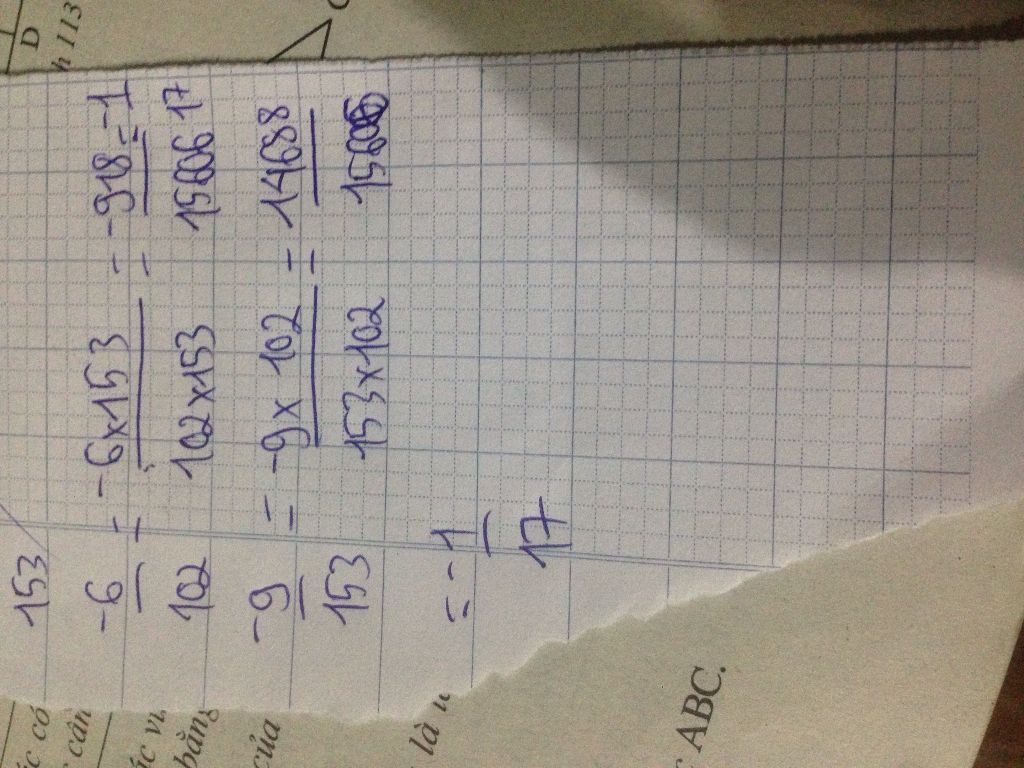 153
-6/102 = -6x153/102x153 = -918/15606 = -1/17
-9/153 = -9x102/153x102 = -14688/15606
= -1/17
D
h 113
C
ác có
cân
ác vu
bằng
của
là
ABC.